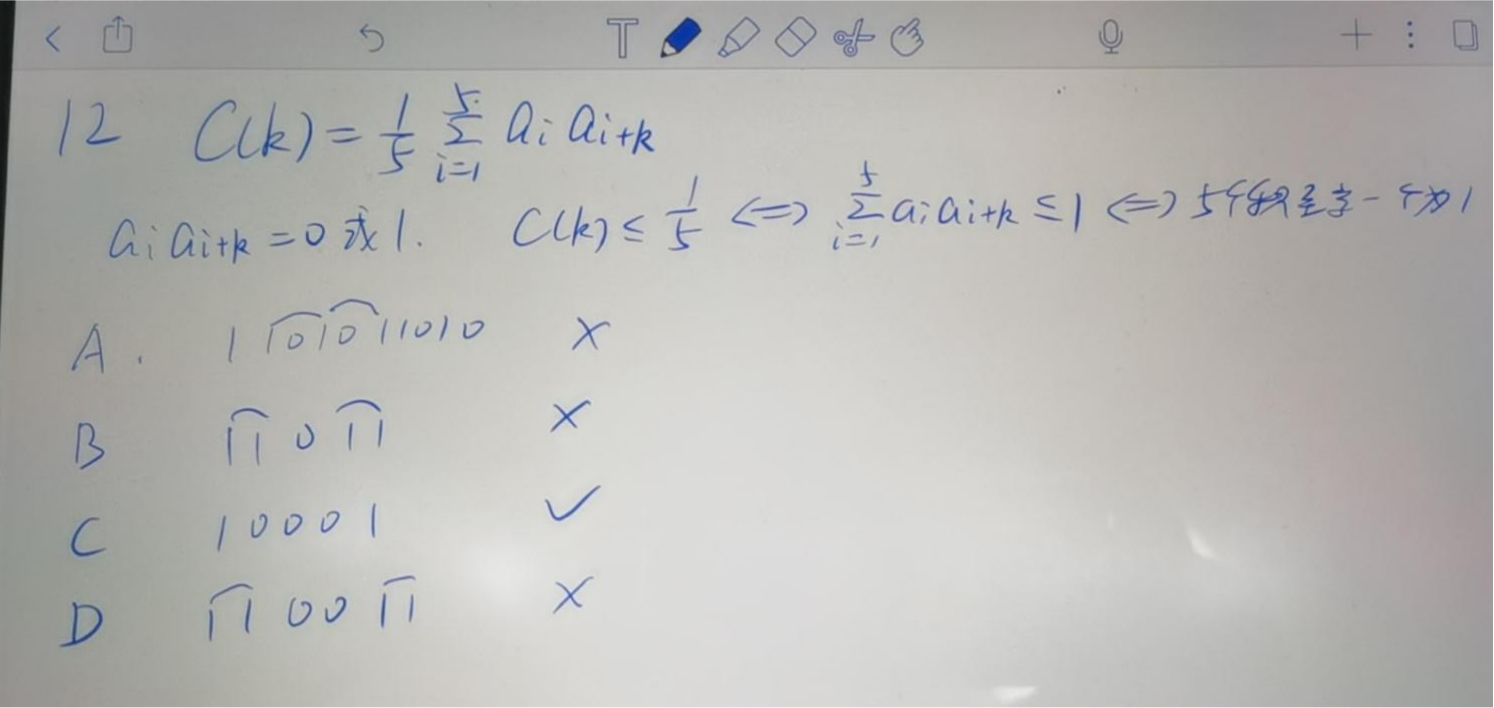 T
12 C(k)=1/5 5∑i=1 aᵢ aᵢ₊ₖ
aᵢ aᵢ₊ₖ=0或1. C(k)≤1/5 ⇔ 5∑i=1 aᵢaᵢ₊ₖ≤1 ⇔ 5个积至多一个为1
A. 1101011010 ×
B 11011 ×
C 10001 ✓
D 110011 ×